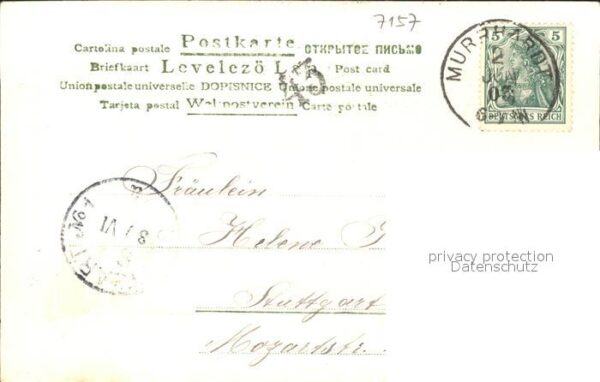 7157
Postkarte
Cartolina postale ОТКРЫТОЕ ПИСЬМО
Briefkaart Levelezö Post card
Union postale universelle DOPISNICE Unione postale universale
Tarjeta postal Weltpostverein Carte postale
MURRHARDT
2
JUN
03
5 5
DEUTSCHES REICH
Fräulein
Helene
Stuttgart
Mozartstr.
No 1
3 / VI
privacy protection
Datenschutz